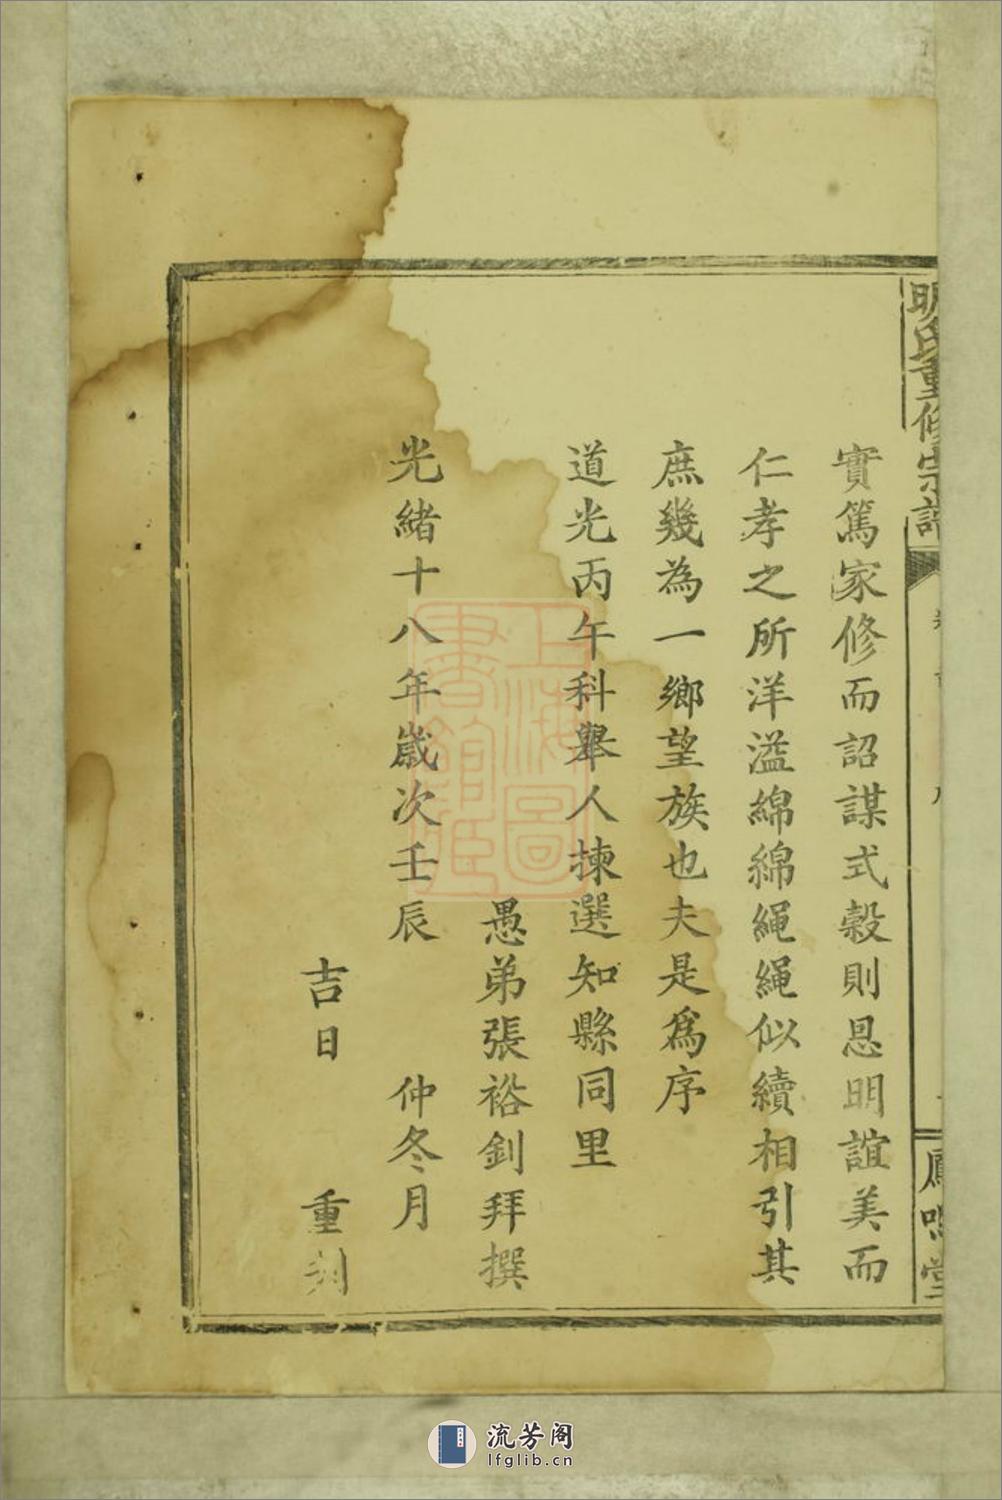 實篤家修而詔謀式穀則恩明誼美而
仁孝之所洋溢綿綿繩繩似續相引其
庶幾為一鄉望族也夫是爲序
道光丙午科舉人揀選知縣同里
愚弟張裕釗拜撰
光緒十八年歲次壬辰 仲冬月
吉日 重刻
明氏重修宗譜
鳳鳴堂
上海圖書館藏
流芳阁
lfglib.cn